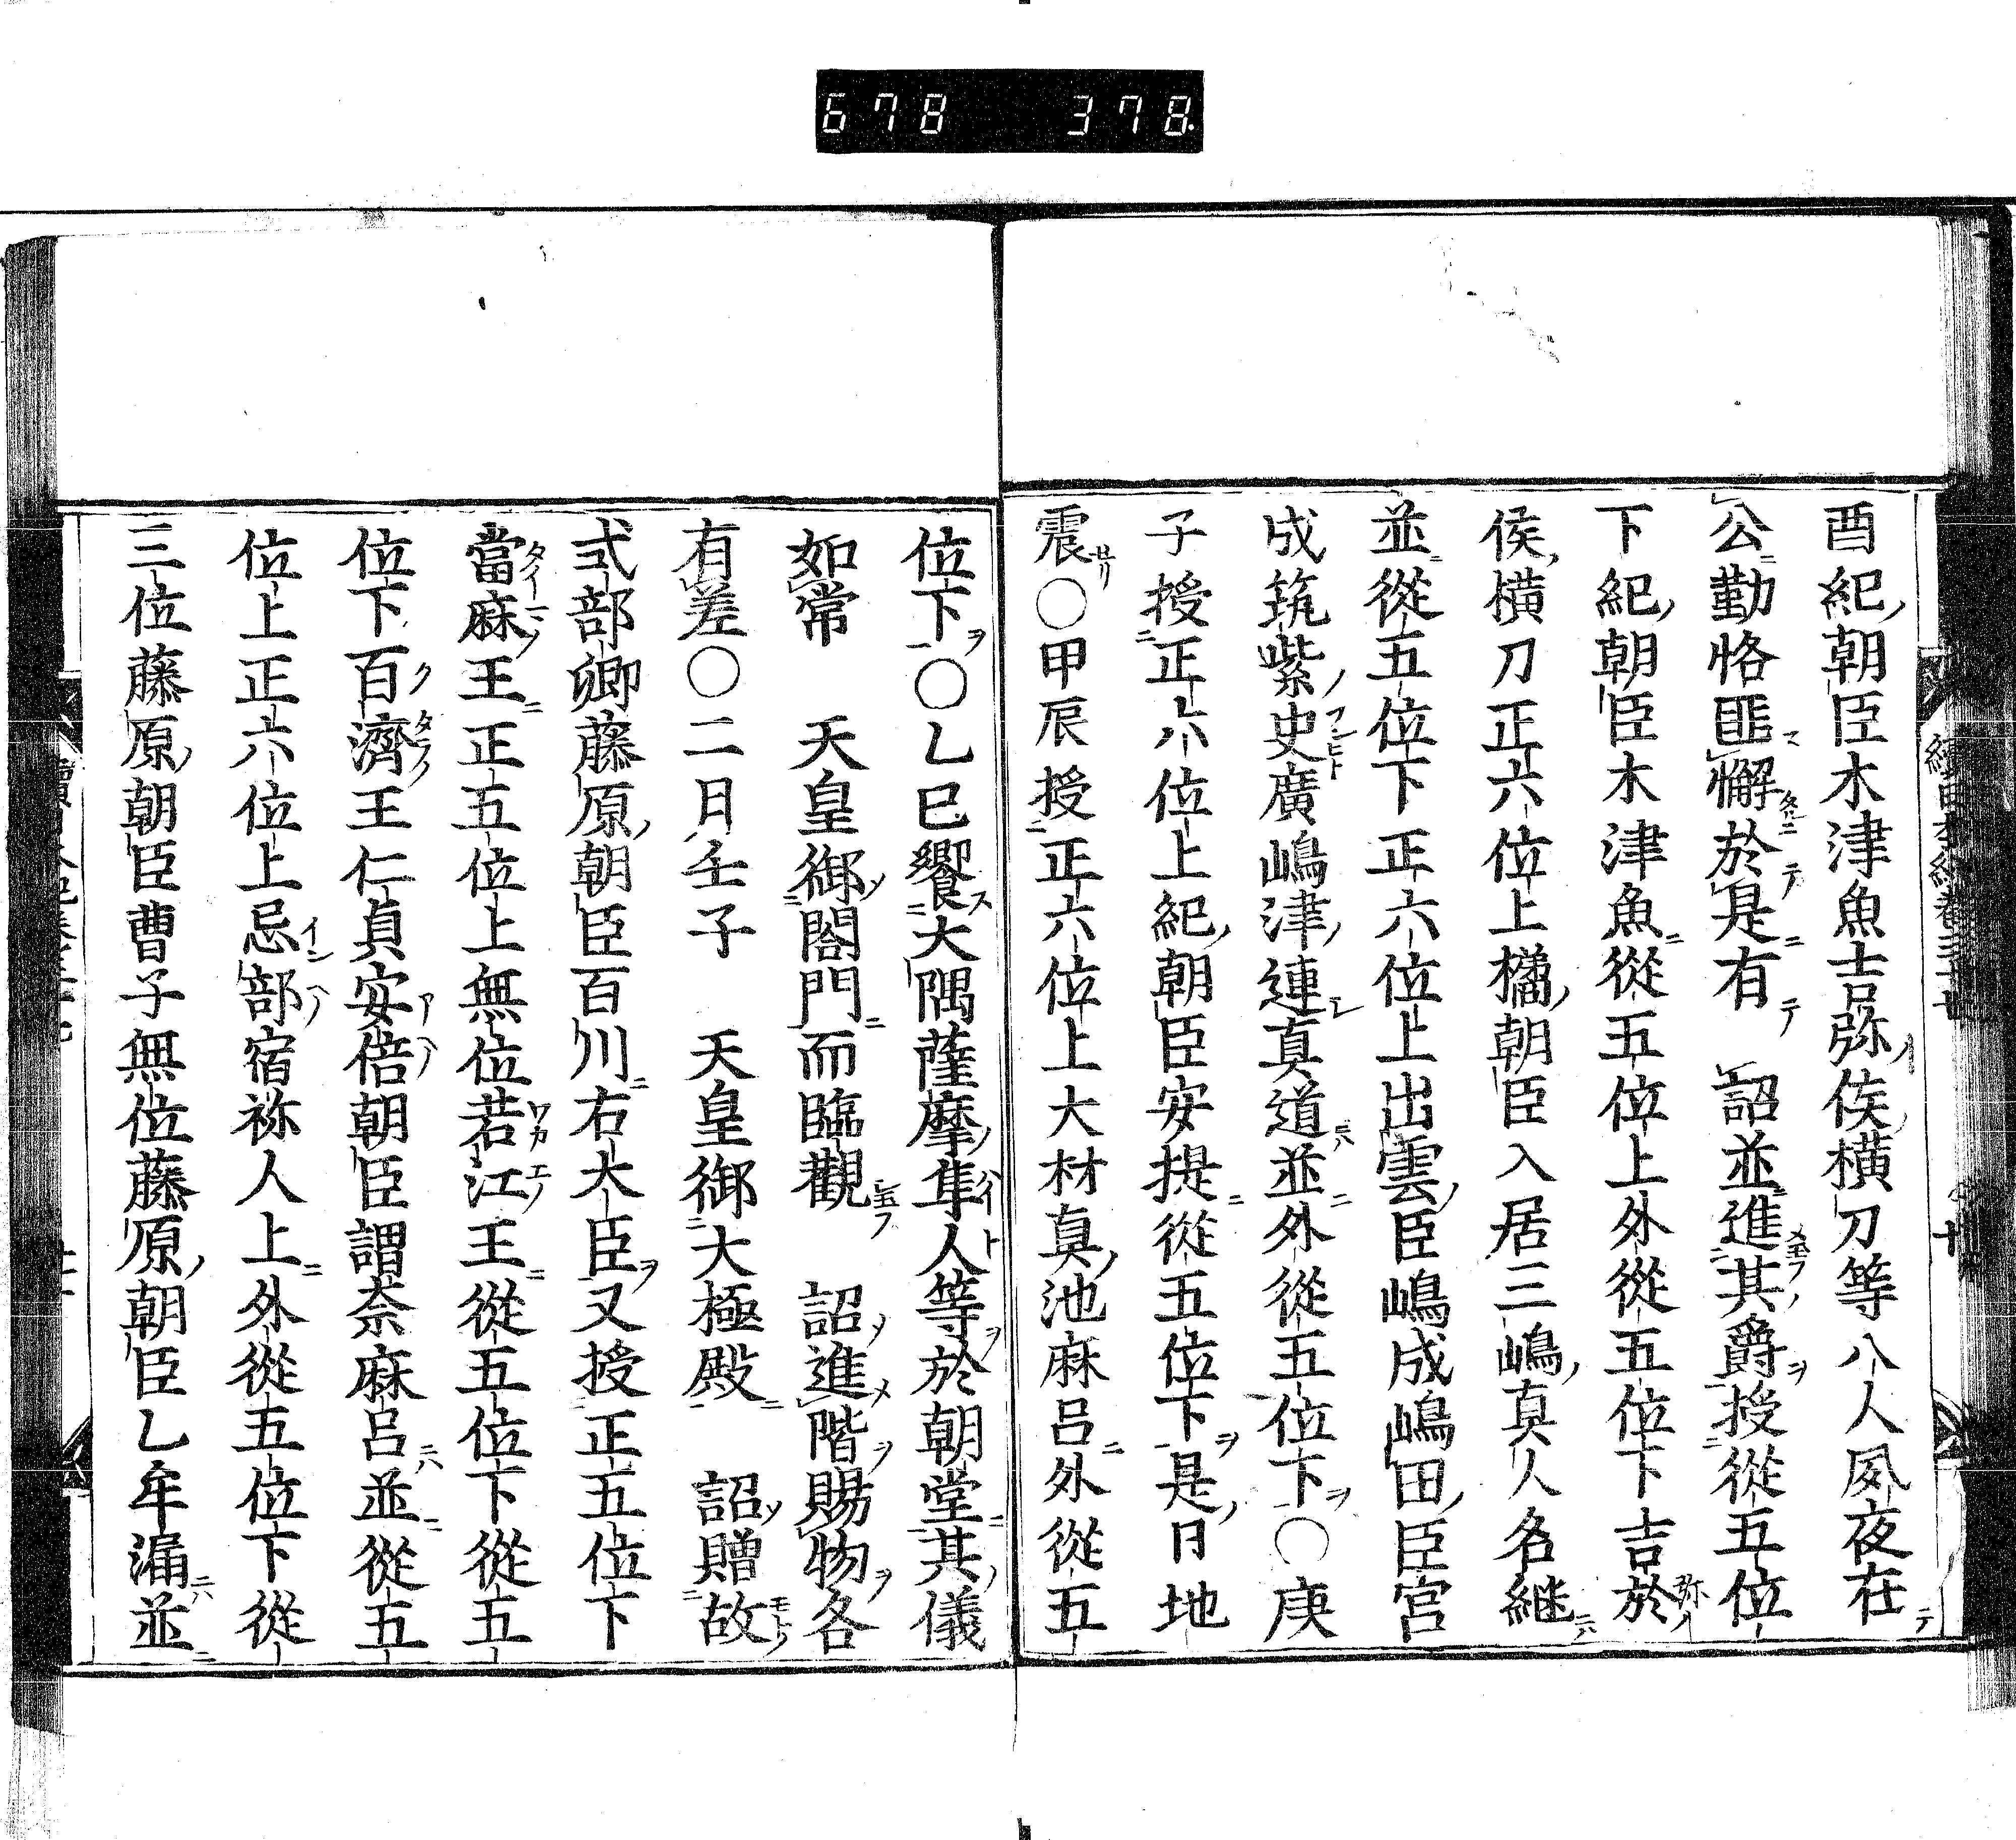 678 378
酉紀朝臣木津魚吉弥侯横刀等八人夙夜在
公勤恪匪懈於是有 詔並進其爵授從五位
下紀朝臣木津魚從五位上外從五位下吉於
侯横刀正六位上橘朝臣入居三嶋真人名継
並從五位下正六位上出雲臣嶋成嶋田臣宮
成筑紫史廣嶋津連真道並外從五位下〇庚
子授正六位上紀朝臣安提從五位下是日地
震〇甲辰授正六位上大村真池麻呂外從五
位下〇乙巳饗大隅薩摩隼人等於朝堂其儀
如常 天皇御閤門而臨觀 詔進階賜物各
有差〇二月壬子 天皇御大極殿 詔贈故
式部卿藤原朝臣百川右大臣又授正五位下
當麻王正五位上無位若江王從五位下從五
位下百濟王仁貞安倍朝臣謂奈麻呂並從五
位上正六位上忌部宿祢人上外從五位下從
三位藤原朝臣曹子無位藤原朝臣乙牟漏並